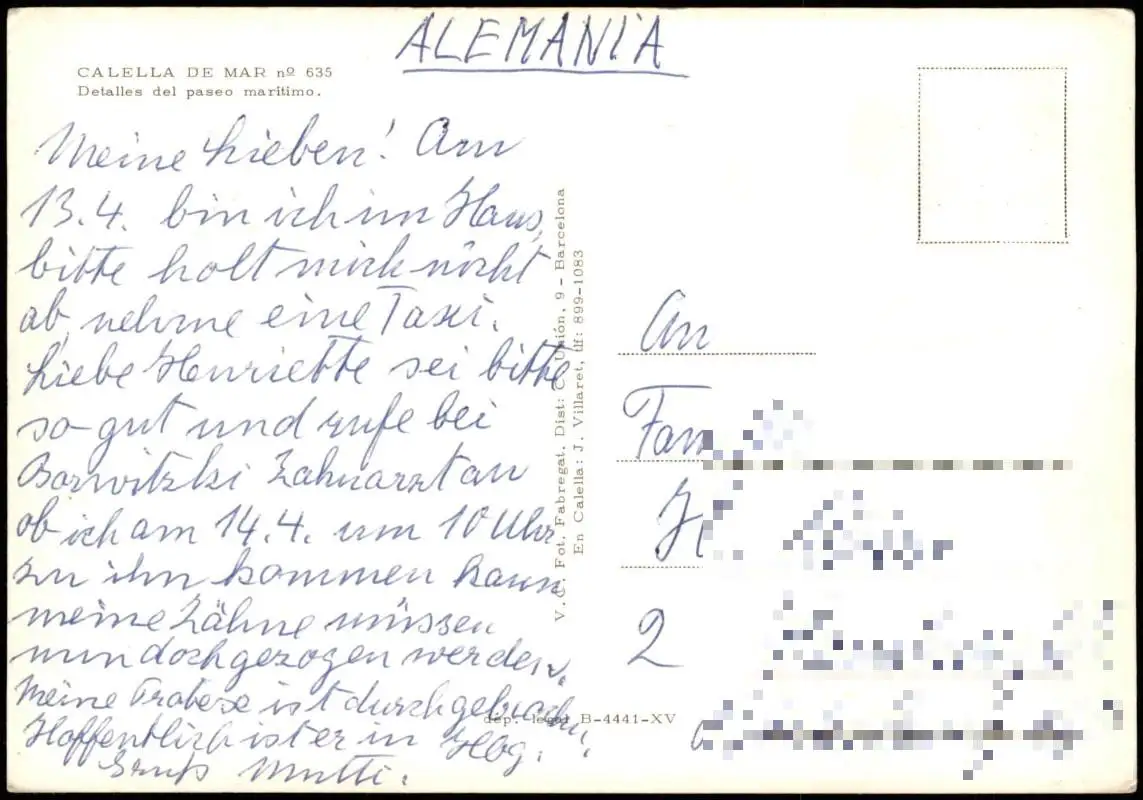 ALEMANIA
CALELLA DE MAR nº 635
Detalles del paseo maritimo.
Meine Lieben! Am
13.4. bin ich im Haus,
bitte holt mich nicht
ab, nehme eine Taxi.
Liebe Henriette sei bitte
so gut und rufe bei
Borwitzki Zahnarzt an
ob ich am 14.4. um 10 Uhr
zu ihm kommen kann
meine Zähne müssen
nun doch gezogen werden.
Meine Protese ist durchgebrochen,
Hoffentlich ist er in Hbg.
Gruß Mutti.
V. C. Fot. Fabregat. Dist: C. Unión, 9 - Barcelona
En Calella: J. Villaret, tlf: 899-1083
dep. legal B-4441-XV
An
Fam
2